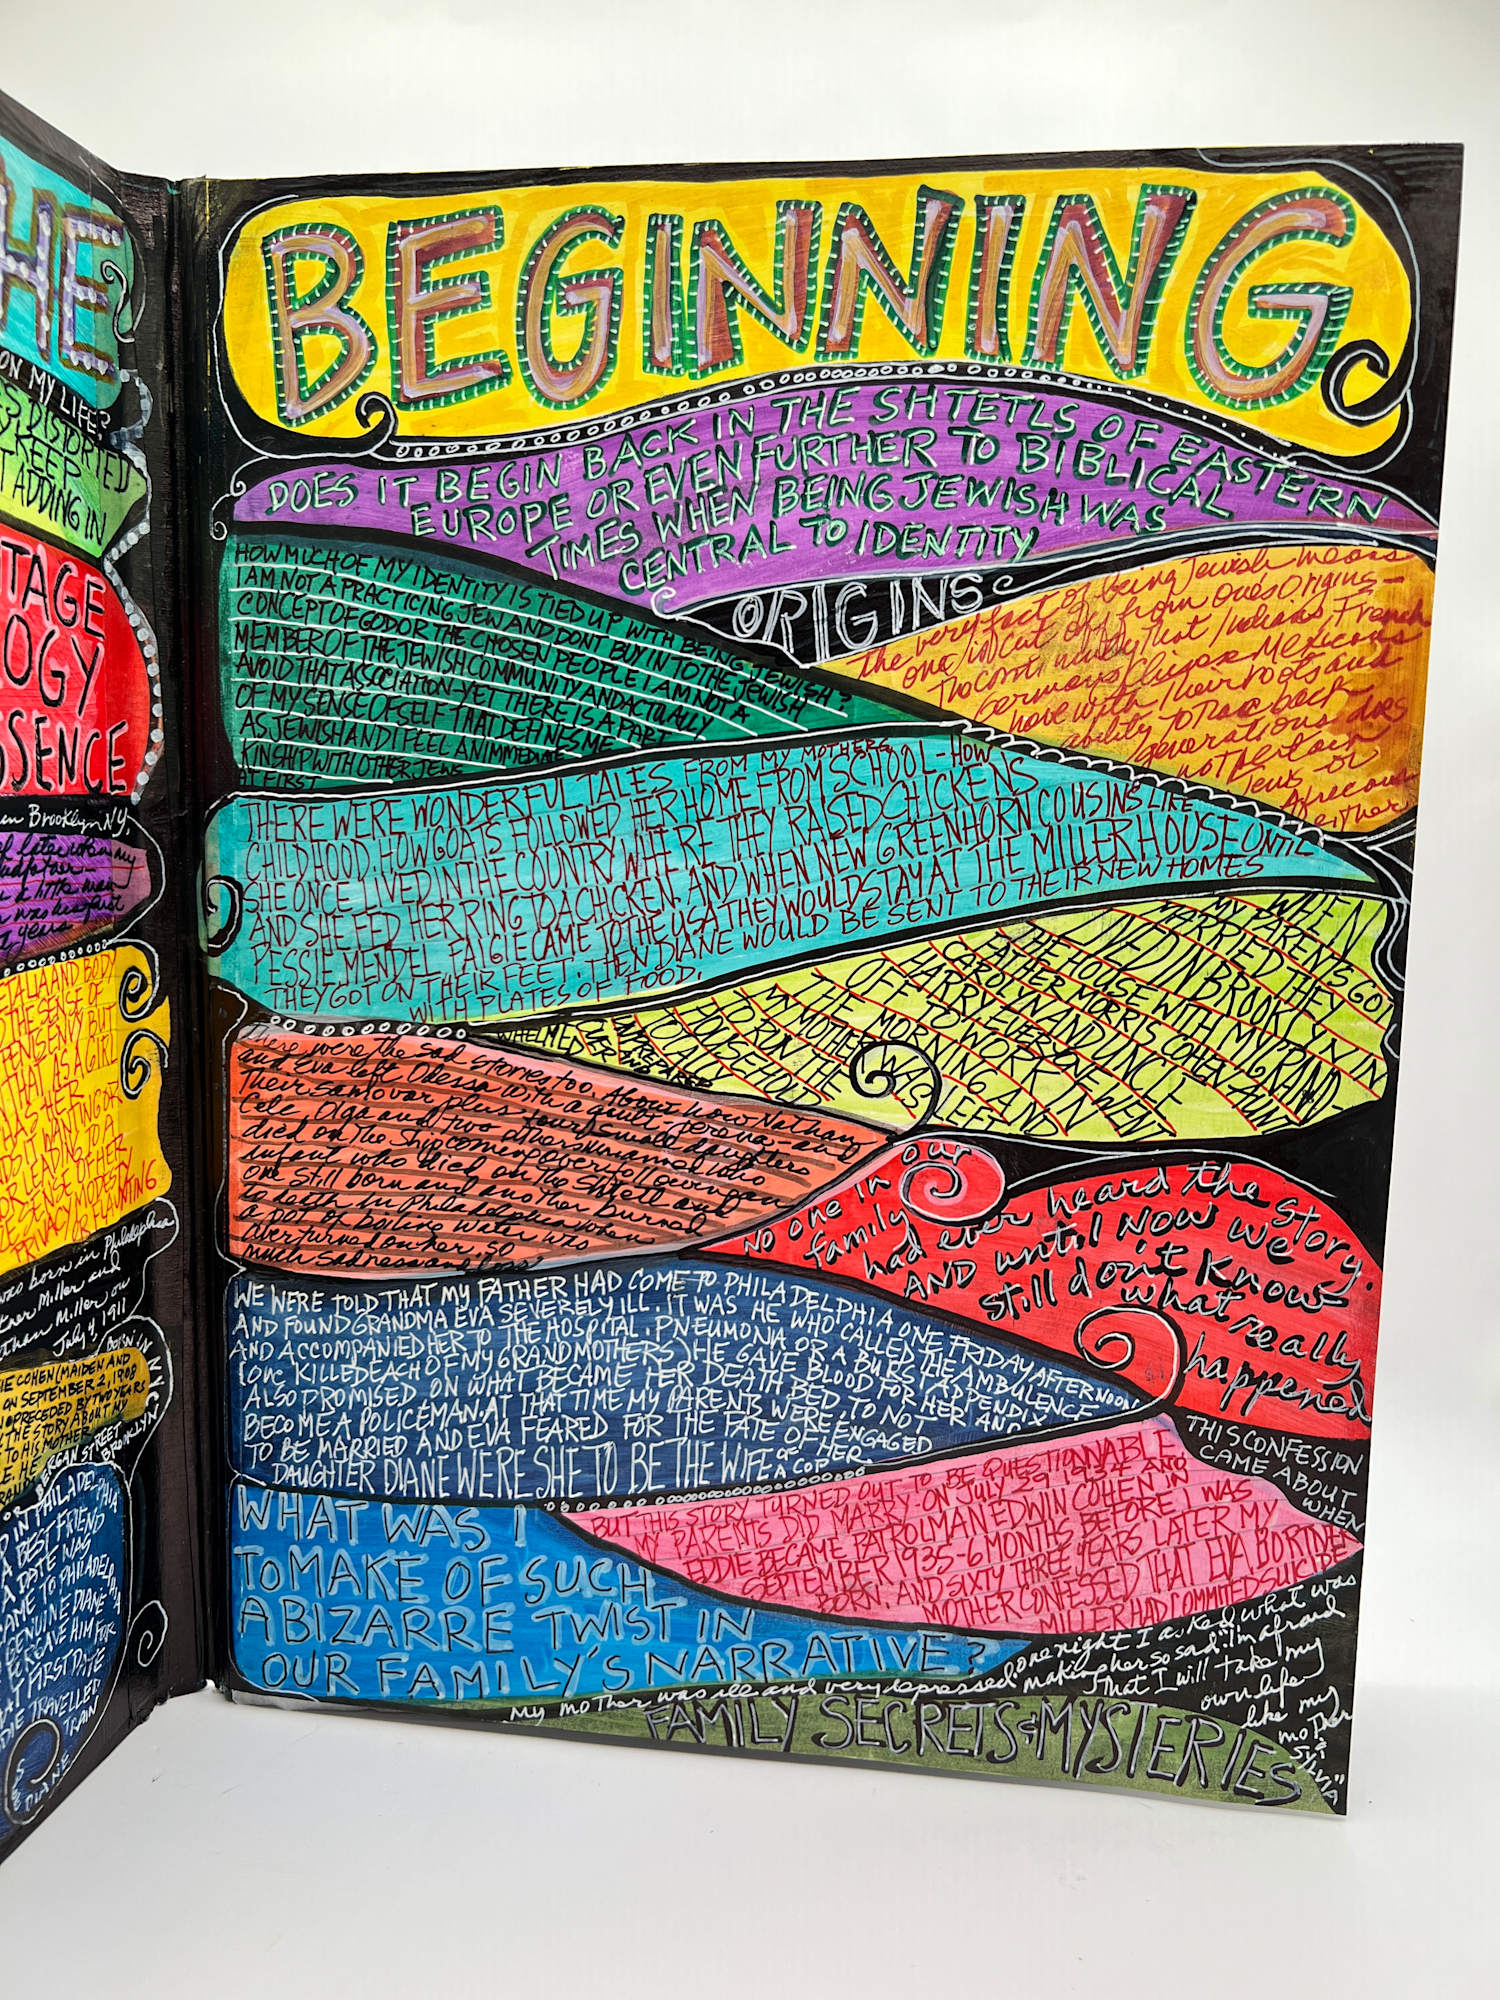 THE
ON MY LIFE?
DISTORTED
KEEP
ADDING IN
TAGE
OGY
SSENCE
in Brooklyn NY.
years
AND BODY
THE SENSE OF
PENIS ENVY BUT
THAT AS A GIRL
HAS HER
WANTING OR
LEADING TO A
SENSE OF HER
MODESTY
PRIVACY OR FLAUNTING
was born in Philadelphia
Miller and
Nathan Miller on
July 4, 1911
BORN IN N.Y.C.
COHEN (MAIDEN AND
ON SEPTEMBER 2, 1908
PRECEDED BY TWO YEARS
THE STORY ABOUT MY
TO HIS MOTHER
BERGAN STREET
BROOKLYN
IN PHILADELPHIA
A BEST FRIEND
A DATE WAS
CAME TO PHILADELPHIA
GENUINE DIANE
FORGAVE HIM FOR
FIRST DATE
TRAVELLED
TRAIN
DIANE
BEGINNING
DOES IT BEGIN BACK IN THE SHTETLS OF EASTERN
EUROPE OR EVEN FURTHER TO BIBLICAL
TIMES WHEN BEING JEWISH WAS
CENTRAL TO IDENTITY
ORIGINS
HOW MUCH OF MY IDENTITY IS TIED UP WITH BEING JEWISH?
I AM NOT A PRACTICING JEW AND DON'T BUY IN TO THE JEWISH
CONCEPT OF GOD OR THE CHOSEN PEOPLE. I AM NOT A
MEMBER OF THE JEWISH COMMUNITY AND ACTUALLY
AVOID THAT ASSOCIATION-YET THERE IS A PART
OF MY SENSE OF SELF THAT DEFINES ME
AS JEWISH AND I FEEL AN IMMEDIATE
KINSHIP WITH OTHER JEWS
AT FIRST
The very fact of being Jewish means
one is cut off from one's origins-
The continuity that Indians, French
Germans Chinese Mexicans
have with their roots and
ability to trace back
generations does
not pertain
Jews or
either
THERE WERE WONDERFUL TALES FROM MY MOTHERS
CHILDHOOD, HOW GOATS FOLLOWED HER HOME FROM SCHOOL-HOW
SHE ONCE LIVED IN THE COUNTRY WHERE THEY RAISED CHICKENS
AND SHE FED HER RING TO A CHICKEN. AND WHEN NEW GREENHORN COUSINS LIKE
PESSIE MENDEL FAIGIE CAME TO THE USA THEY WOULD STAY AT THE MILLER HOUSE UNTIL
THEY GOT ON THEIR FEET. THEN DIANE WOULD BE SENT TO THEIR NEW HOMES
WITH PLATES OF FOOD.
WHEN
MY PARENTS GOT
MARRIED THEY
LIVED IN BROOKLYN IN
THE HOUSE WITH MY GRAND-
FATHER MORRIS COHEN-AUNT
CAROLYN AND UNCLE
HARRY. EVERYONE WENT
OFF TO WORK IN
THE MORNING AND
MY MOTHER WAS LEFT
TO RUN THE
HOUSEHOLD
There were the sad stories, too. About how Nathan
and Eva left Odessa with a quilt-perena-and
Their samovar plus four small daughters
Cele, Olga and two other unnamed who
died on the ship coming over following an
infant who died in the Shtetl and
one still born and another burned
to death in Philadelphia when
a pot of boiling water was
overturned on her. So
much sadness and loss
No one in our
family
had ever heard the story.
AND until NOW we
still don't KNOW
what really
happened
WE WERE TOLD THAT MY FATHER HAD COME TO PHILADELPHIA ONE FRIDAY AFTERNOON
AND FOUND GRANDMA EVA SEVERELY ILL. IT WAS HE WHO CALLED THE AMBULENCE
AND ACCOMPANIED HER TO THE HOSPITAL. PNEUMONIA OR A BURST APPENDIX
(ONE KILLED EACH OF MY GRANDMOTHERS) HE GAVE BLOOD FOR HER AND
ALSO PROMISED ON WHAT BECAME HER DEATH BED TO NOT
BECOME A POLICEMAN. AT THAT TIME MY PARENTS WERE ENGAGED
TO BE MARRIED AND EVA FEARED FOR THE FATE OF HER
DAUGHTER DIANE WERE SHE TO BE THE WIFE of A COPER
BUT THIS STORY TURNED OUT TO BE QUESTIONNABLE
MY PARENTS DID MARRY-ON JULY 29, 1934 AND
EDDIE BECAME PATROLMAN EDWIN COHEN IN
SEPTEMBER 1935-6 MONTHS BEFORE I WAS
BORN. AND SIXTY THREE YEARS LATER MY
MOTHER CONFESSED THAT EVA BORTNER
MILLER HAD COMMITED SUICIDE
THIS CONFESSION
CAME ABOUT
WHEN
WHAT WAS I
TO MAKE OF SUCH
A BIZARRE TWIST IN
OUR FAMILY'S NARRATIVE?
My mother was ill and very depressed
one night I asked what was
making her so sad: "I'm afraid
That I will take my
own life
like my
mother
SILVIA"
FAMILY SECRETS & MYSTERIES